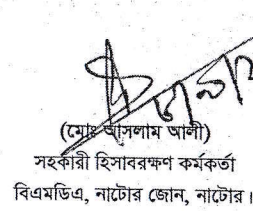 (মোঃ আসলাম আলী)
সহকারী হিসাবরক্ষণ কর্মকর্তা
বিএমডিএ, নাটোর জোন, নাটোর।